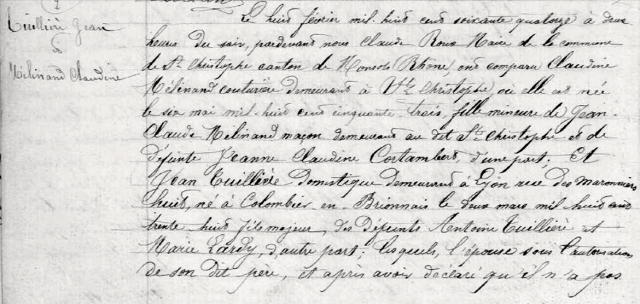 2
Tuillière Jean
&
Mélinand Claudine
Le huit février mil huit cent soixante quatorze à deux
heures du soir, pardevant nous Claude Roux Maire de la commune
de St Christophe canton de Monsols Rhône, ont comparu Claudine
Mélinand couturière demeurant à St Christophe, où elle est née
le six mai mil huit cent cinquante trois, fille mineure de Jean
Claude Mélinand maçon demeurant au dit St Christophe et de
défunte Jeanne Claudine Cortambert, d'une part. Et
Jean Tuillière domestique demeurant à Lyon rue des maronniers
huit, né à Colombier en Brionnais le deux mars mil huit cent
trente huit fils majeur, des défunts Antoine Tuillière et
Marie Lardy, d'autre part; lesquels, l'épouse sous l'autorisation
de son dit père, et après avoir déclaré qu'il n'a pas